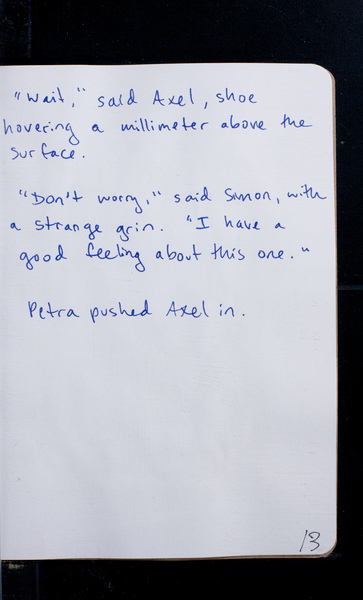 "Wait," said Axel, shoe
hovering a millimeter above the
surface.
"Don't worry," said Simon, with
a strange grin. "I have a
good feeling about this one."
Petra pushed Axel in.
13